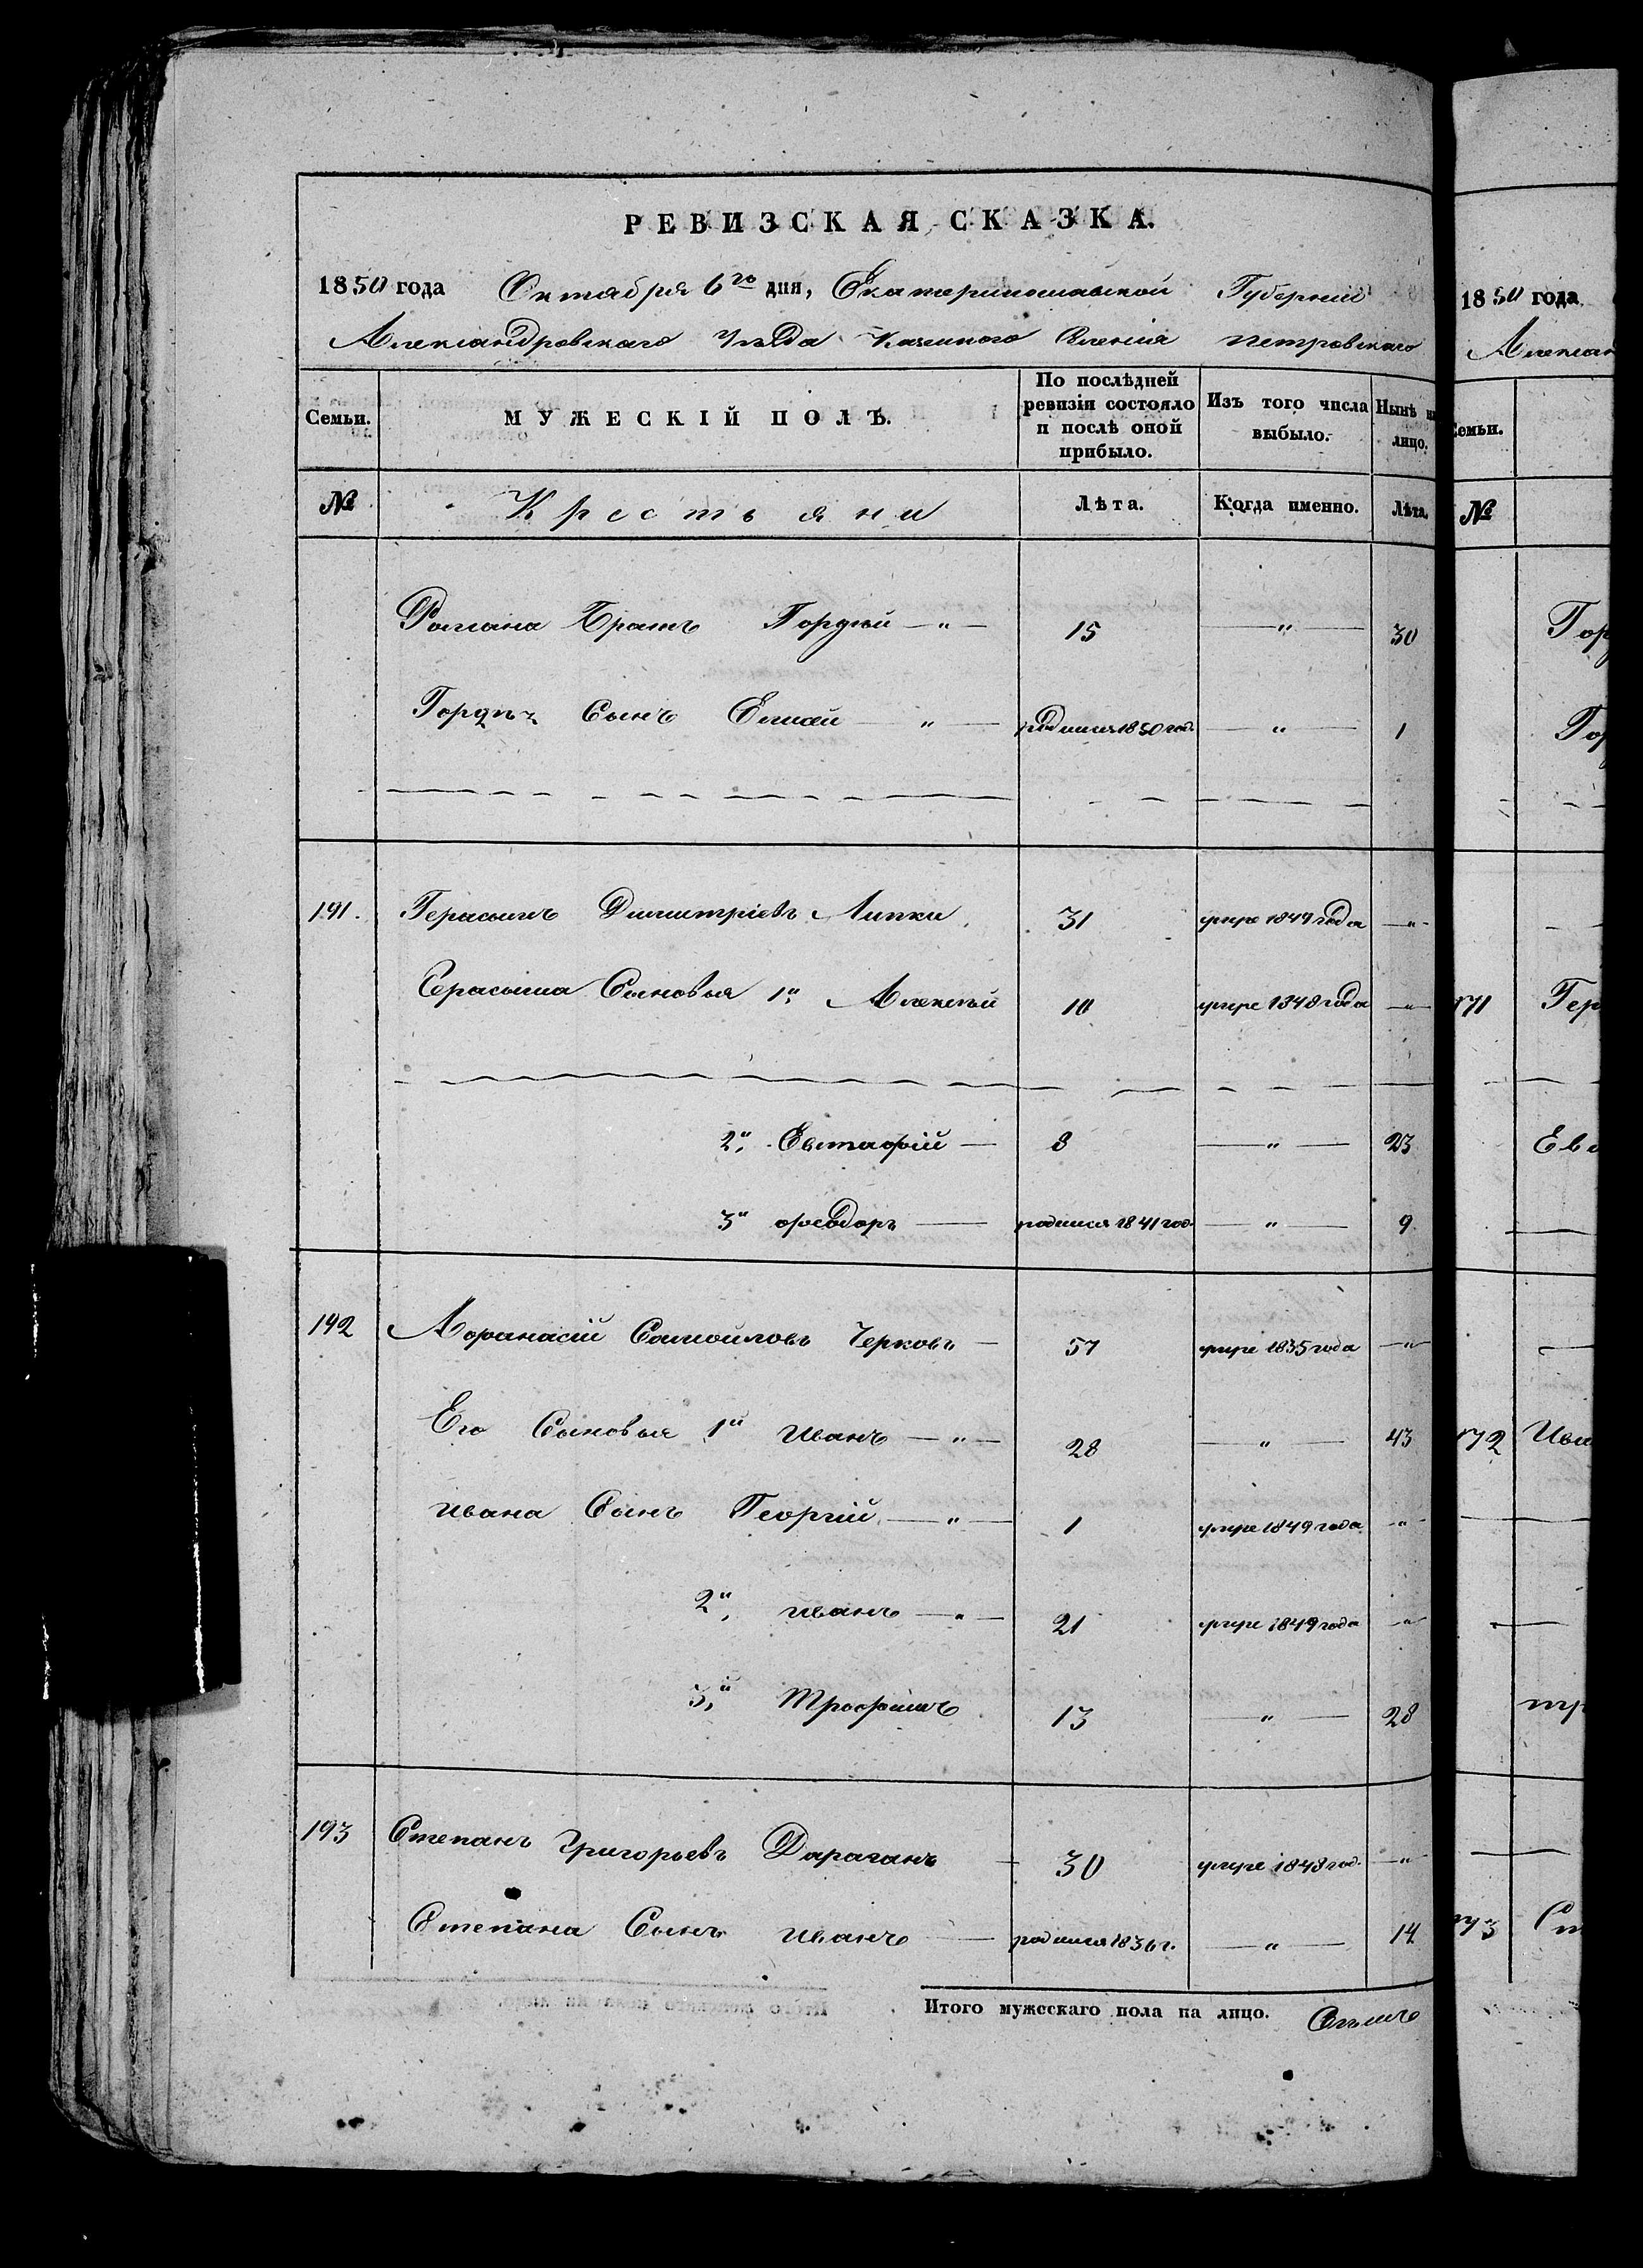 РЕВИЗСКАЯ СКАЗКА.
1850 года Октября 6го дня, Екатеринославской Губернии
Александровского Уѣзда Казенного Селенія Петровского
Семьи. МУЖЕСКІЙ ПОЛЪ. По послѣдней ревизіи состояло и послѣ оной прибыло. Изъ того числа выбыло. Нынѣ на лицо.
№ Крестьяни Лѣта. Когда именно. Лѣта.
Романа Братъ Гордѣй — " — 15 — " — 30
Гордѣя Сынъ — " — родился 1850 год. — " — 1
191. Герасимъ Дмитріевъ Липки 31 умре 1849 года — " —
Герасима Сыновья 1й Алексѣй 10 умре 1848 года — " —
2й Евстафій — 8 — " — 23
3й Феодоръ — родился 1841 год. — " — 9
192 Афанасій Самойловъ Черковъ — 57 умре 1835 года — " —
Его Сыновья 1й Иванъ — " — 28 — " — 43
Ивана Сынъ Георгій — " — 1 умре 1849 года — " —
2й Иванъ — " — 21 умре 1849 года — " —
3й Трофимъ 13 — " — 28
193 Степанъ Григорьевъ Дараганъ — 30 умре 1848 год. — " —
Степана Сынъ Иванъ — родился 1836 г. — " — 14
Итого мужескаго пола на лицо.
1850 года
Алексан
Семьи.
№
Гор
Гор
171 Гер
Евс
172 Ива
тр
173 Ст